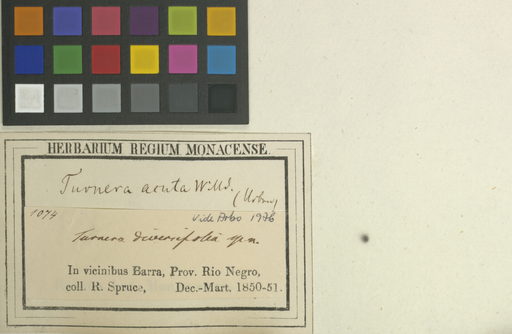 HERBARIUM REGIUM MONACENSE.
Turnera acuta Willd.
(Urban)
1074
vide Arbo 1976
Turnera diversifolia sp. n.
In vicinibus Barra, Prov. Rio Negro,
coll. R. Spruce, Dec.-Mart. 1850-51.